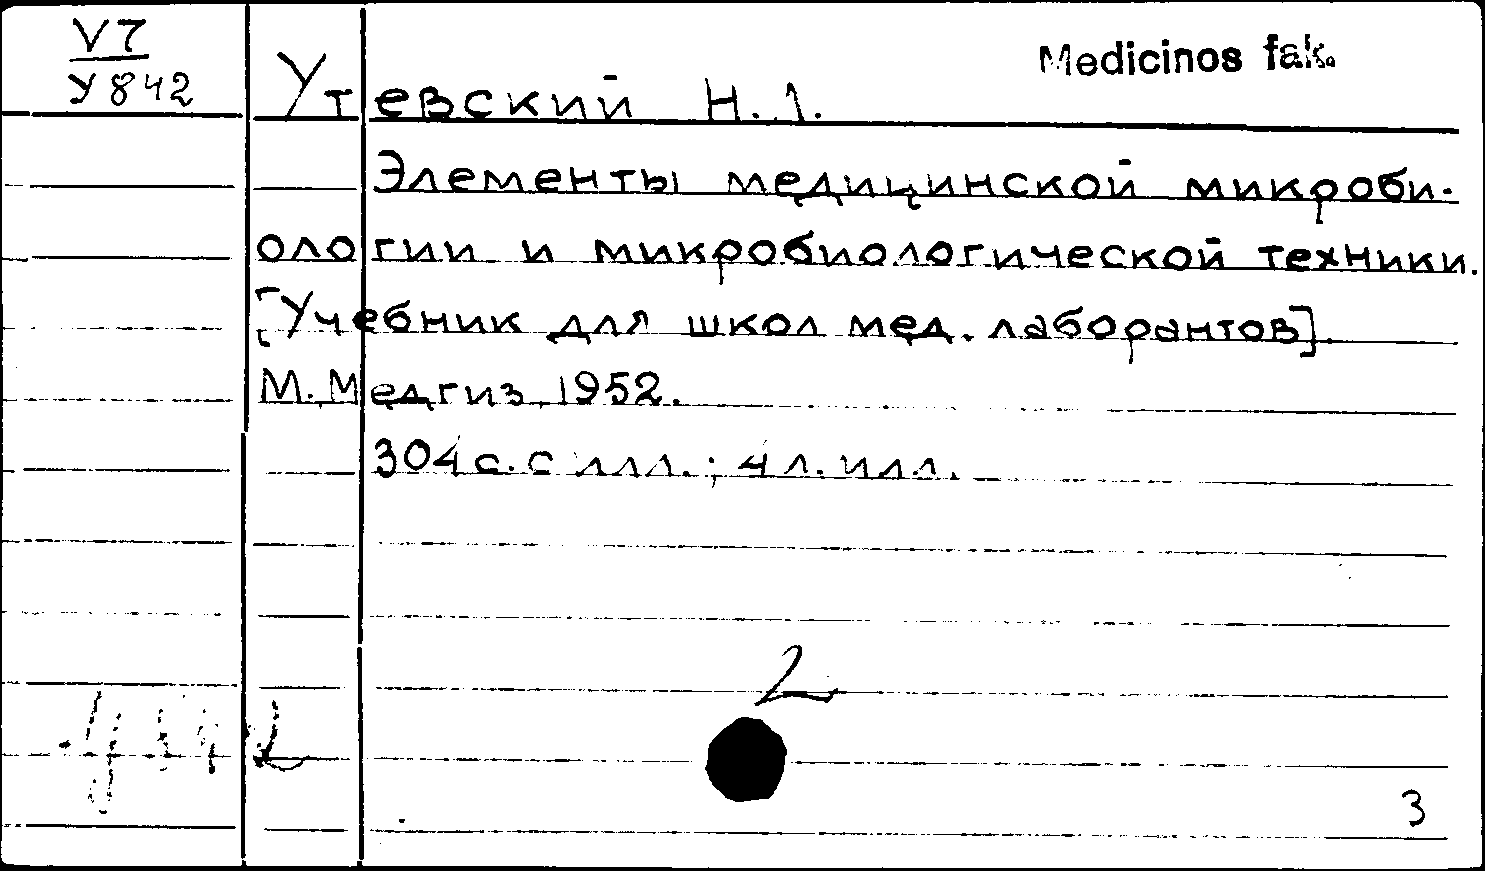 V7
У842
Medicinos fak.
Утевский Н. Л.
Элементы медицинской микроби-
ологии и микробиологической техники.
[Учебник для школ мед. лаборантов].
М. Медгиз, 1952.
304 с. с илл.; 4 л. илл.
2
3